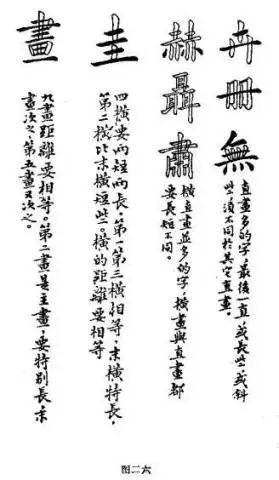 卉冊無
直畫多的字，最後一直或長些或斜
些，須不同於其它直畫。
赫聶肅
橫直畫並多的字，橫畫與直畫都
要長短不同。
圭
四橫要兩短兩長，第一第三橫相等，末橫特長，
第二橫比末橫短些。橫的距離要相等
畫
九畫距離要相等。第二畫是主畫，要特別長，末
畫次之，第五畫又次之。
图二六